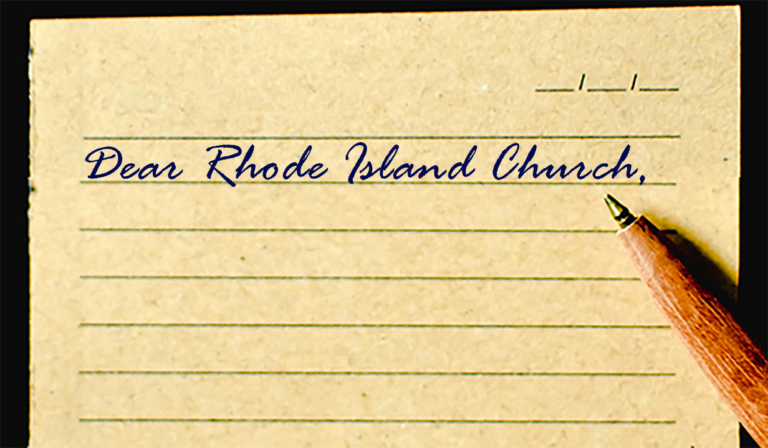 __/__/__
Dear Rhode Island Church,